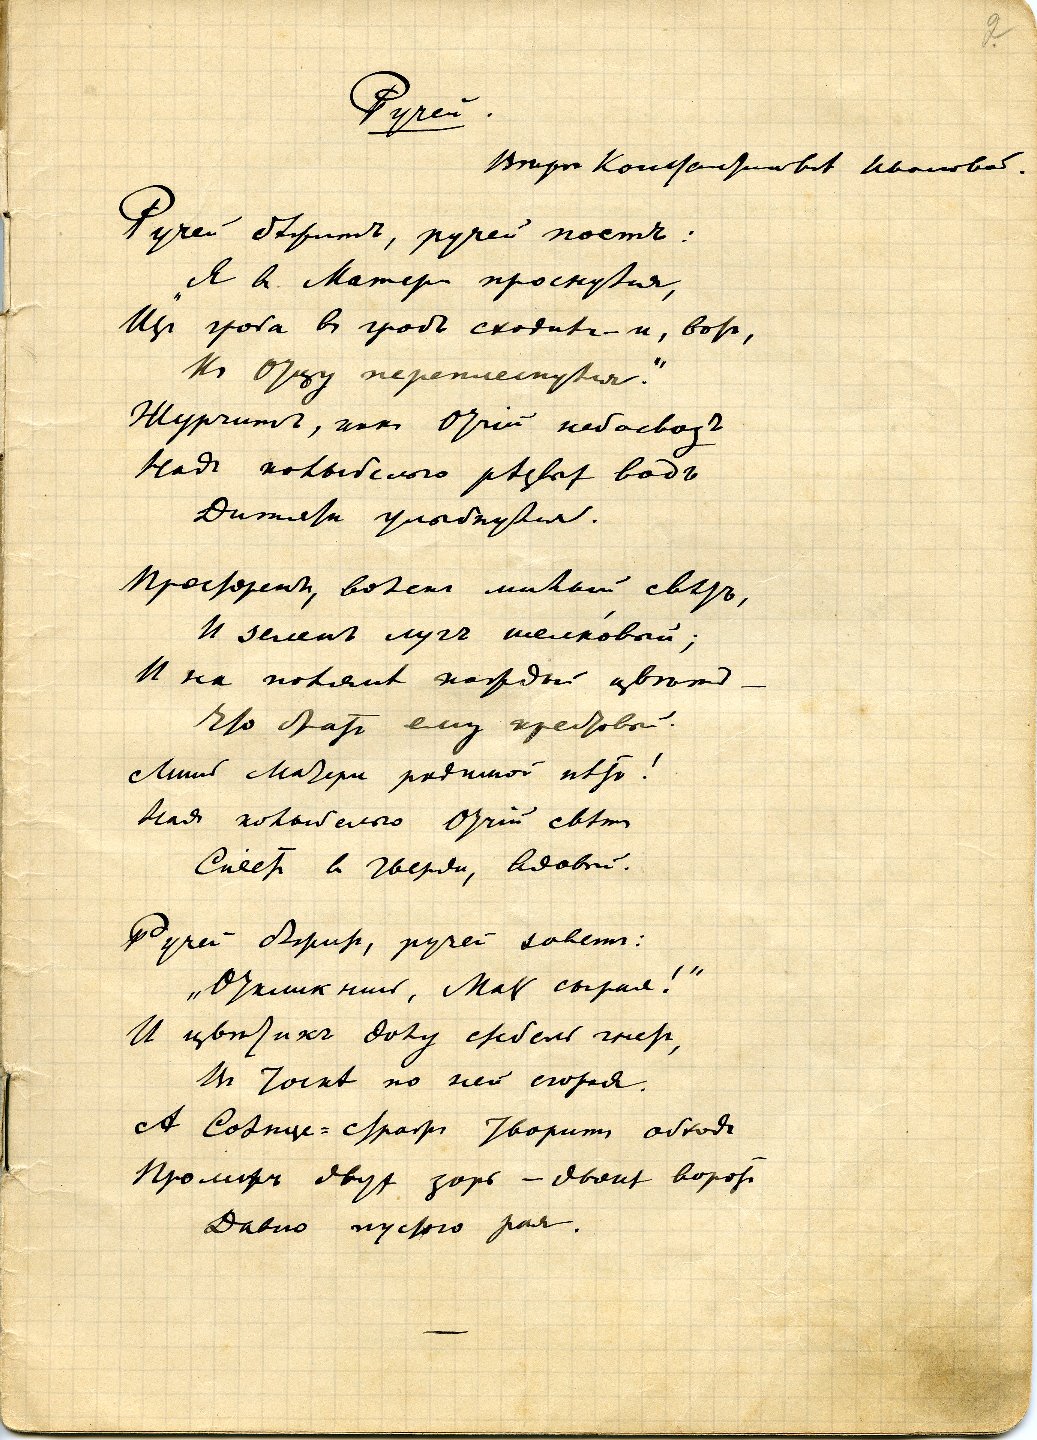 2.
Ручей.
Вѣрѣ Константиновнѣ Ивановой.
Ручей бѣжитъ, ручей поетъ:
„Я в Матери проснулся,
Изъ гроба въ гробъ сходилъ – и, вотъ,
Къ Отцу переплеснулся."
Журчитъ, какъ Отчій небосводъ
Надъ колыбелью рѣзвых водъ
Дитяти улыбнулся.
Просторенъ, волен милый свѣтъ,
И зеленъ лугъ шелковый;
И на поклонъ каждый цвѣтъ –
Что братъ ему крестовый.
Лишь Матери родимой нѣтъ!
Надъ колыбелью Отчій свѣтъ
Сіяетъ в тверди, вдовый.
Ручей бѣжитъ, ручей зоветъ:
„Откликнись, Мать сырая!"
И цвѣтикъ долу стебель гнетъ,
Въ тоскѣ по ней сгорая.
А Солнце-стражъ творитъ обходъ
Промежъ двух зорь – двоихъ воротъ
Давно пустого рая.